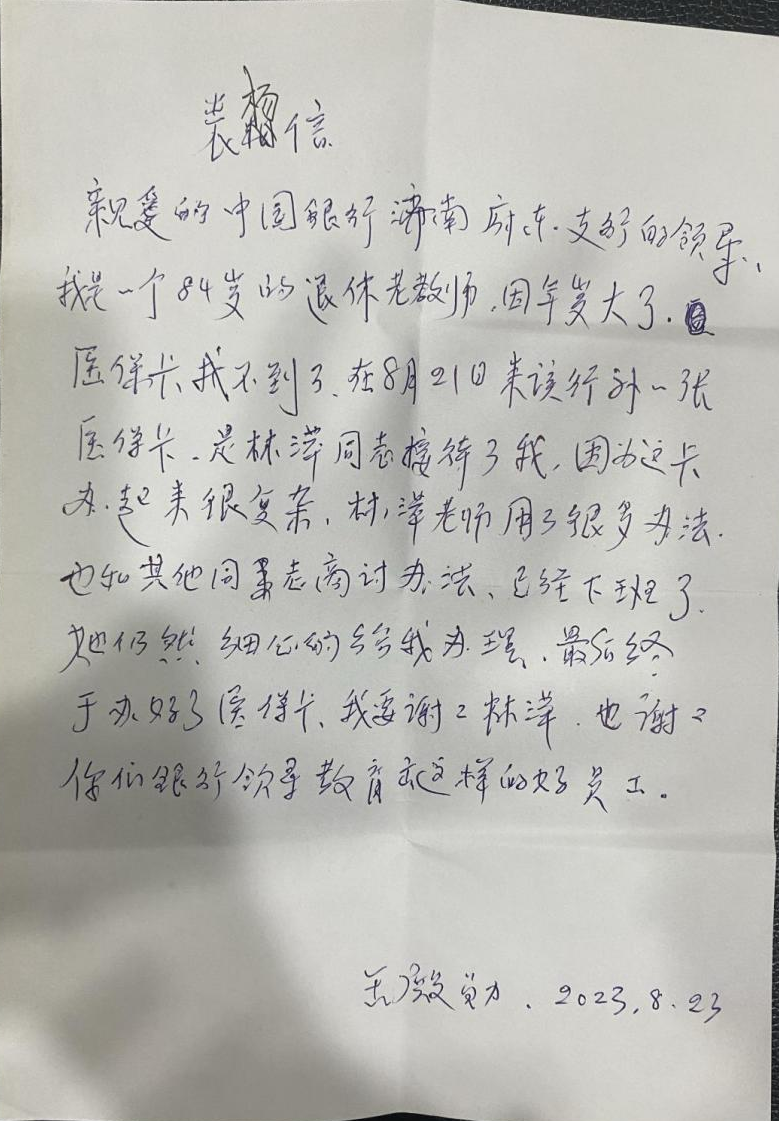 表杨信
亲爱的中国银行济南府东支行的领导、
我是一个84岁的退休老教师，因年岁大了.
医保卡找不到了、在8月21日来该行补一张
医保卡、是林萍同志接待了我，因为这卡
办起来很复杂，林萍老师用了很多办法.
也和其他同志商讨办法、已经下班了、
她仍然细心的给我办理、最后终
于办好了医保卡、我要谢〻林萍.也谢〻
你们银行领导教育出这样的好员工。
2023.8.23